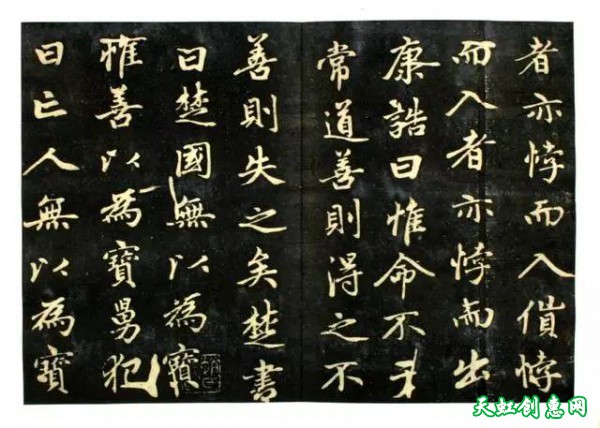 者亦悖而入貨悖
而入者亦悖而出
康誥曰惟命不于
常道善則得之不
善則失之矣楚書
曰楚國無以為寶
惟善以為寶舅犯
曰亡人無以為寶
天虹创惠网